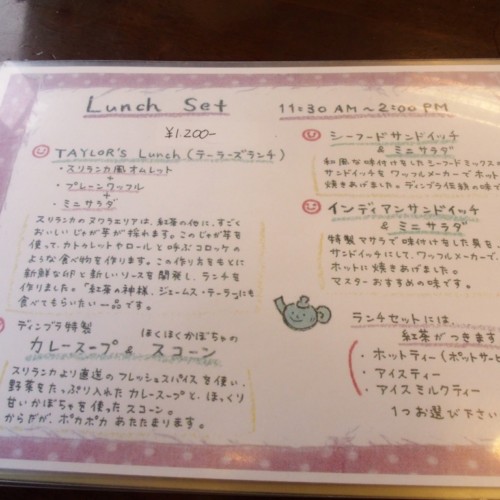 Lunch Set
¥1,200-
TAYLOR'S Lunch (テーラーズランチ)
・スリランカ風オムレット
+
・プレーンワッフル
+
・ミニサラダ
スリランカのヌワラエリアは、紅茶の他に、すごく
おいしいじゃが芋が採れます。このじゃが芋を
使って、カトゥレットやロールと呼ぶコロッケの
ような食べ物を作ります。この作り方をもとに
新鮮な卵と新しいソースを開発し、ランチを
作りました。"紅茶の神様、ジェームス・テーラー"にも
食べてもらいたい一品です。
ディンブラ特製
ほくほくかぼちゃの
カレースープ & スコーン
スリランカより直送のフレッシュスパイスを使い、
野菜をたっぷり入れたカレースープと、ほっくり
甘いかぼちゃを使ったスコーン。
からだが、ポカポカあたたまります。
11:30 AM~2:00 PM
シーフードサンドイッチ
& ミニサラダ
和風な味付けをしたシーフードミックス
サンドイッチをワッフルメーカーでホット
焼きあげました。ディンブラ伝統の味
インディアンサンドイッチ
& ミニサラダ
特製マサラで味付けをした具を
サンドイッチにして、ワッフルメーカーで、
ホットに焼きあげました。
マスターおすすめの味です。
ランチセットには、
紅茶がつきます
・ホットティー(ポットサービ
・アイスティー
・アイスミルクティー
1つお選び下さい